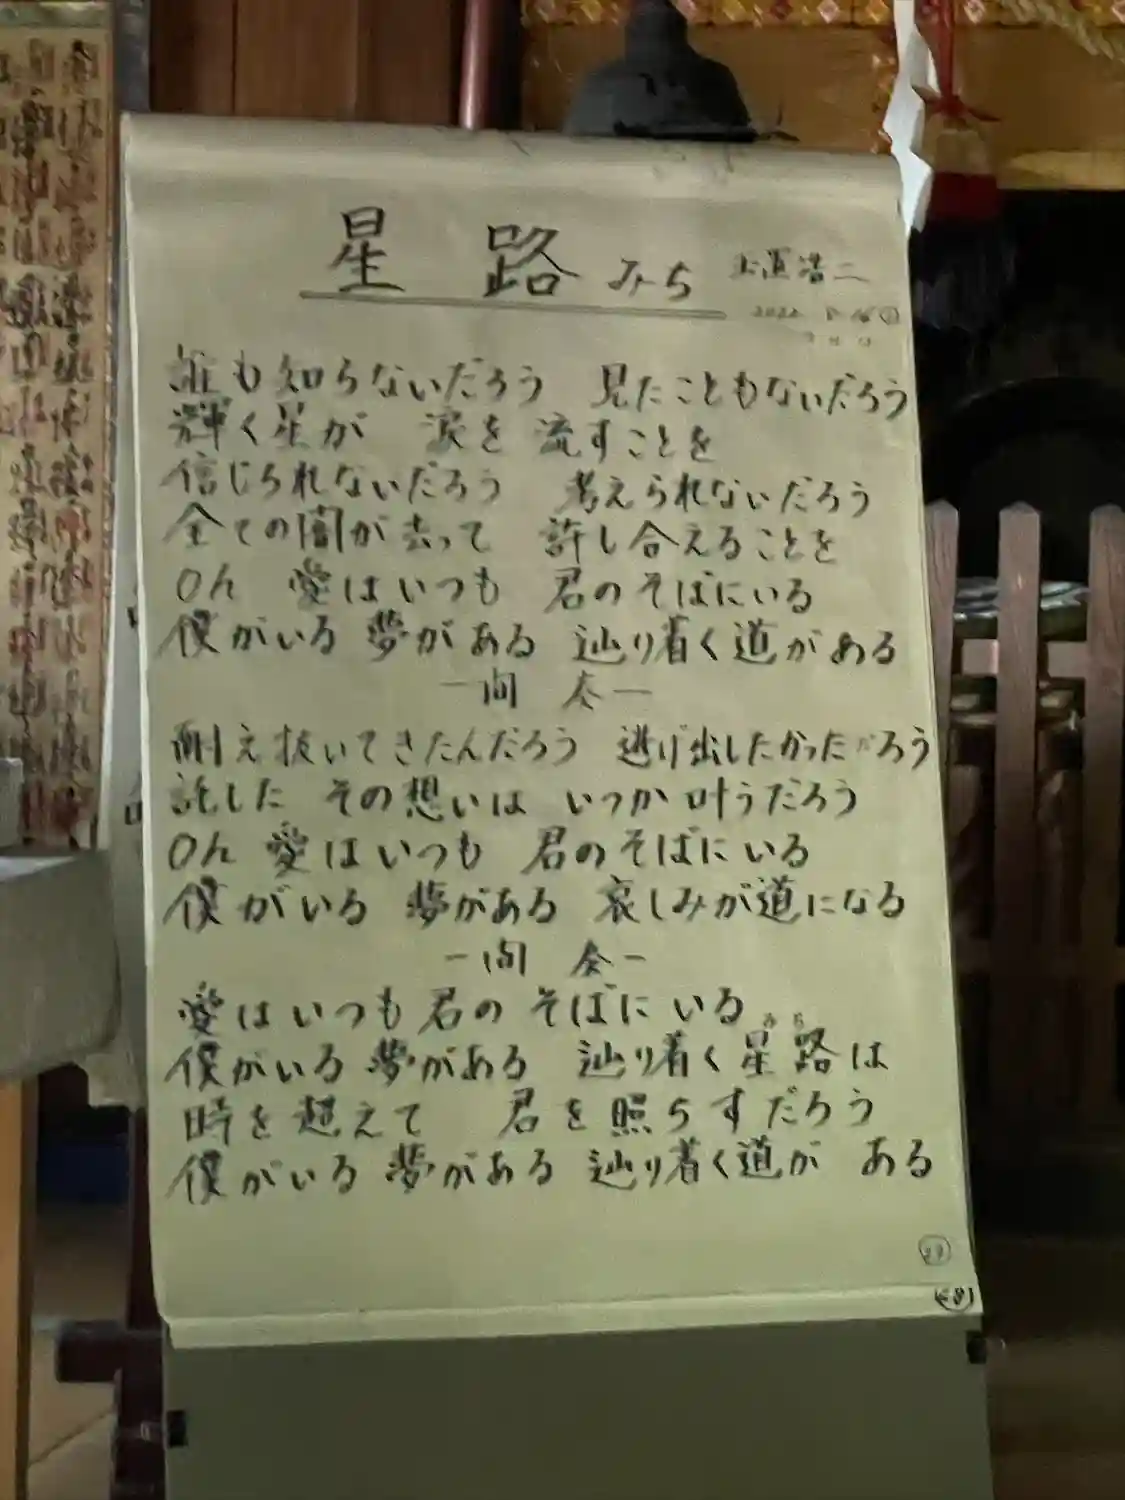 星路 みち 玉置浩二
2022
誰も知らないだろう 見たこともないだろう
輝く星が 涙を 流すことを
信じられないだろう 考えられないだろう
全ての闇が去って 許し合えることを
Oh 愛はいつも 君のそばにいる
僕がいる 夢がある 辿り着く道がある
ー間 奏ー
耐え抜いてきたんだろう 逃げ出したかっただろう
託した その想いは いつか叶うだろう
Oh 愛はいつも 君のそばにいる
僕がいる 夢がある 哀しみが道になる
ー間 奏ー
愛はいつも君の そばにいる
みち
僕がいる 夢がある 辿り着く星路は
時を超えて 君を照らすだろう
僕がいる 夢がある 辿り着く道が ある